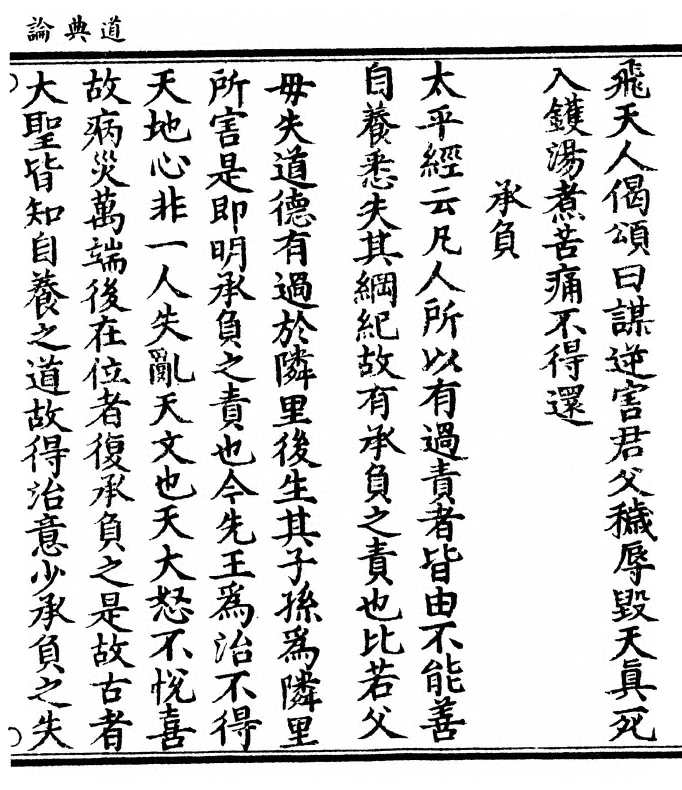 道典論
飛天人偈頌曰謀逆害君父穢辱毀天眞死
入鑊湯煮苦痛不得還
承負
太平經云凡人所以有過責者皆由不能善
自養悉失其綱紀故有承負之責也比若父
毋失道德有過於隣里後生其子孫爲隣里
所害是即明承負之責也今先王爲治不得
天地心非一人失亂天文也天大怒不悅喜
故病災萬端後在位者復承負之是故古者
大聖皆知自養之道故得治意少承負之失